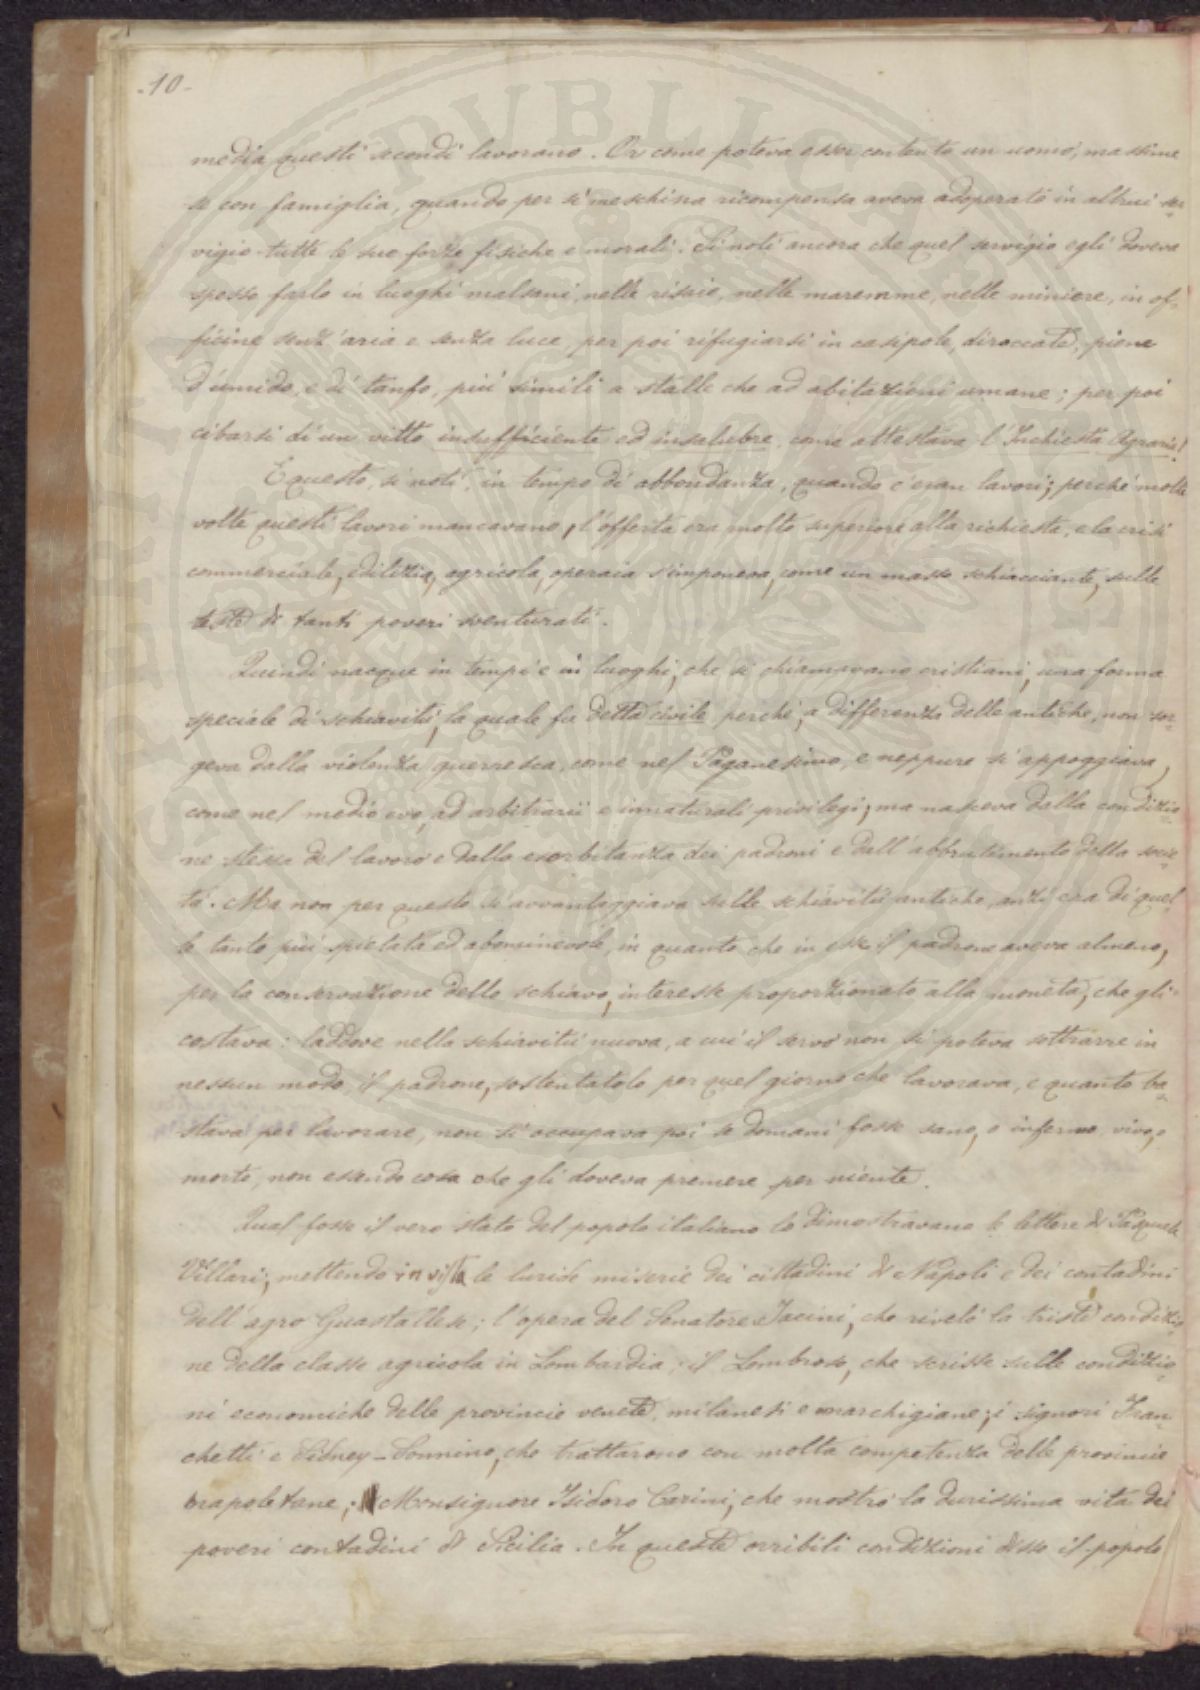 -10-
media questi secondi lavorano. Or come poteva esser contento un uomo, massime
se con famiglia, quando per sì meschina ricompensa aveva adoperato in altrui ser-
vigio tutte le sue forze fisiche e morali. Si noti ancora che quel servigio egli doveva
spesso farlo in luoghi malsani, nelle risaie, nelle maremme, nelle miniere, in of-
ficine senz'aria e senza luce, per poi rifugiarsi in casipole, diroccate, piene
d'umido, e di tanfo, più simili a stalle che ad abitazioni umane; per poi
cibarsi di un vitto insufficiente ed insalubre, come attestava l'Inchiesta Agraria!
E questo, si noti, in tempo di abbondanza, quando c'eran lavori; perché molte
volte questi lavori mancavano, l'offerta era molto superiore alla richiesta, e la crisi
commerciale, edilizia, agricola, operaia s'imponeva, come un masso schiacciante, sulle
teste di tanti poveri sventurati.
Quindi nacque in tempi e in luoghi, che si chiamavano cristiani, una forma
speciale di schiavitù, la quale fu detta civile perché, a differenza delle antiche, non sor-
geva dalla violenza guerresca, come nel Paganesimo, e neppure si appoggiava,
come nel medio evo, ad arbitrarii e innaturali privilegi; ma nasceva dalla condizio-
ne stessa del lavoro e dalla esorbitanza dei padroni e dall'abbrutimento della socie-
tà. Ma non per questo si avvantaggiava sulle schiavitù antiche, anzi era di quel-
le tanto più spietata ed abominevole, in quanto che in esse il padrone aveva almeno,
per la conservazione dello schiavo, interesse proporzionato alla moneta, che gli
costava: laddove nella schiavitù nuova, a cui il servo non si poteva sottrarre in
nessun modo, il padrone, sostentatolo per quel giorno che lavorava, e quanto ba-
stava per lavorare, non si occupava poi se domani fosse sano, o infermo, vivo, o
morto, non essendo cosa che gli doveva premere per niente.
Qual fosse il vero stato del popolo italiano lo dimostravano le lettere di Pasquale
Villari, mettendo in vista le luride miserie dei cittadini di Napoli e dei contadini
dell'agro Guastallese; l'opera del Senatore Jacini, che rivelò la triste condizio-
ne della classe agricola in Lombardia; il Lombroso, che scrisse sulle condizio-
ni economiche delle provincie venete, milanesi e marchigiane; i signori Fran-
chetti e Sidney-Sonnino, che trattarono con molta competenza delle provincie
napoletane; Monsignore Isidoro Carini, che mostrò la durissima vita dei
poveri contadini di Sicilia. In queste orribili condizioni esso il popolo